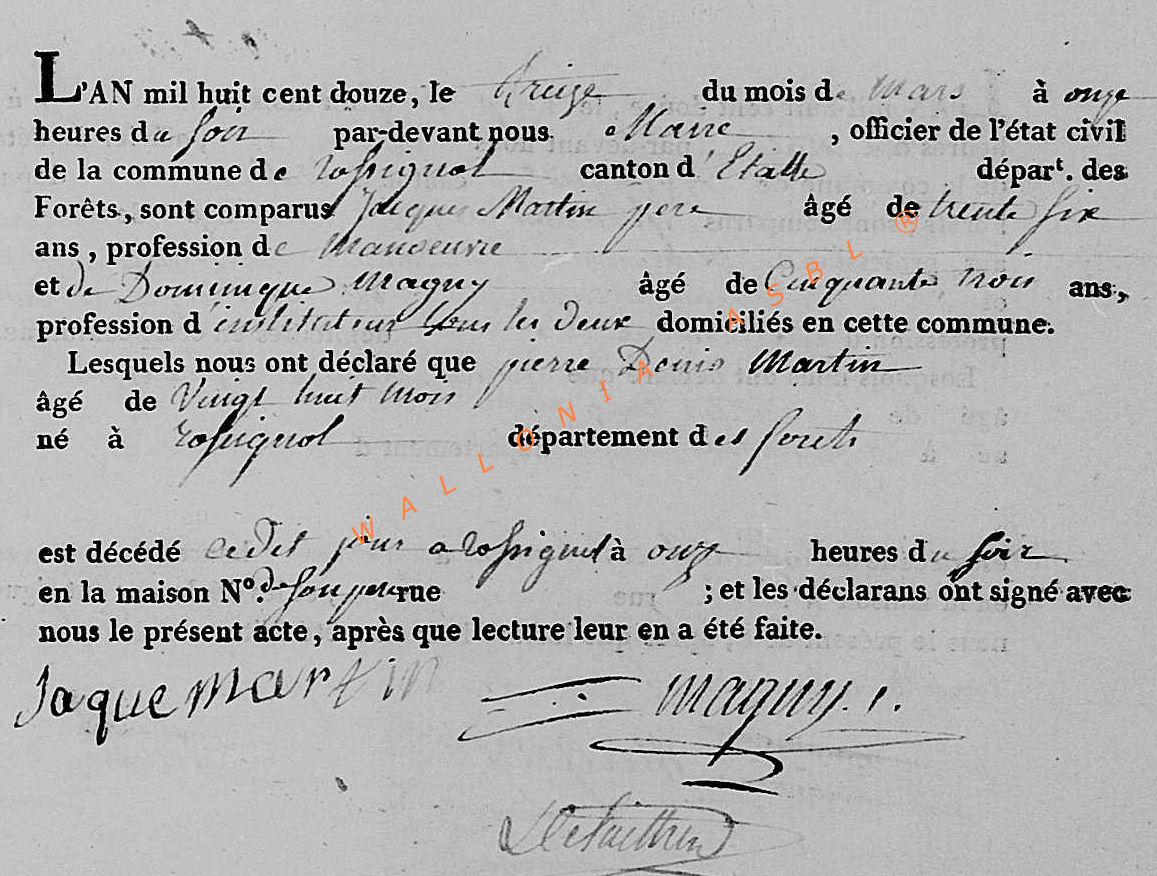 L'AN mil huit cent douze, le treize du mois de mars à onze
heures du soir par-devant nous Maire, officier de l'état civil
de la commune de rossignol canton d'Etalle départ. des
Forêts, sont comparus Jacques Martin pere âgé de trente six
ans, profession de manoeuvre
et de Dominique Maguy âgé de Cinquante trois ans,
profession d'instituteur tous les deux domiciliés en cette commune.
Lesquels nous ont déclaré que pierre Denis Martin
âgé de Vingt huit mois
né à rossignol département des forets
est décédé ce dit jour a rossignol à onze heures du soir
en la maison N°. de son pere rue ; et les déclarans ont signé avec
nous le présent acte, après que lecture leur en a été faite.
Jaque martin maguy
WALLONIA ASBL ®